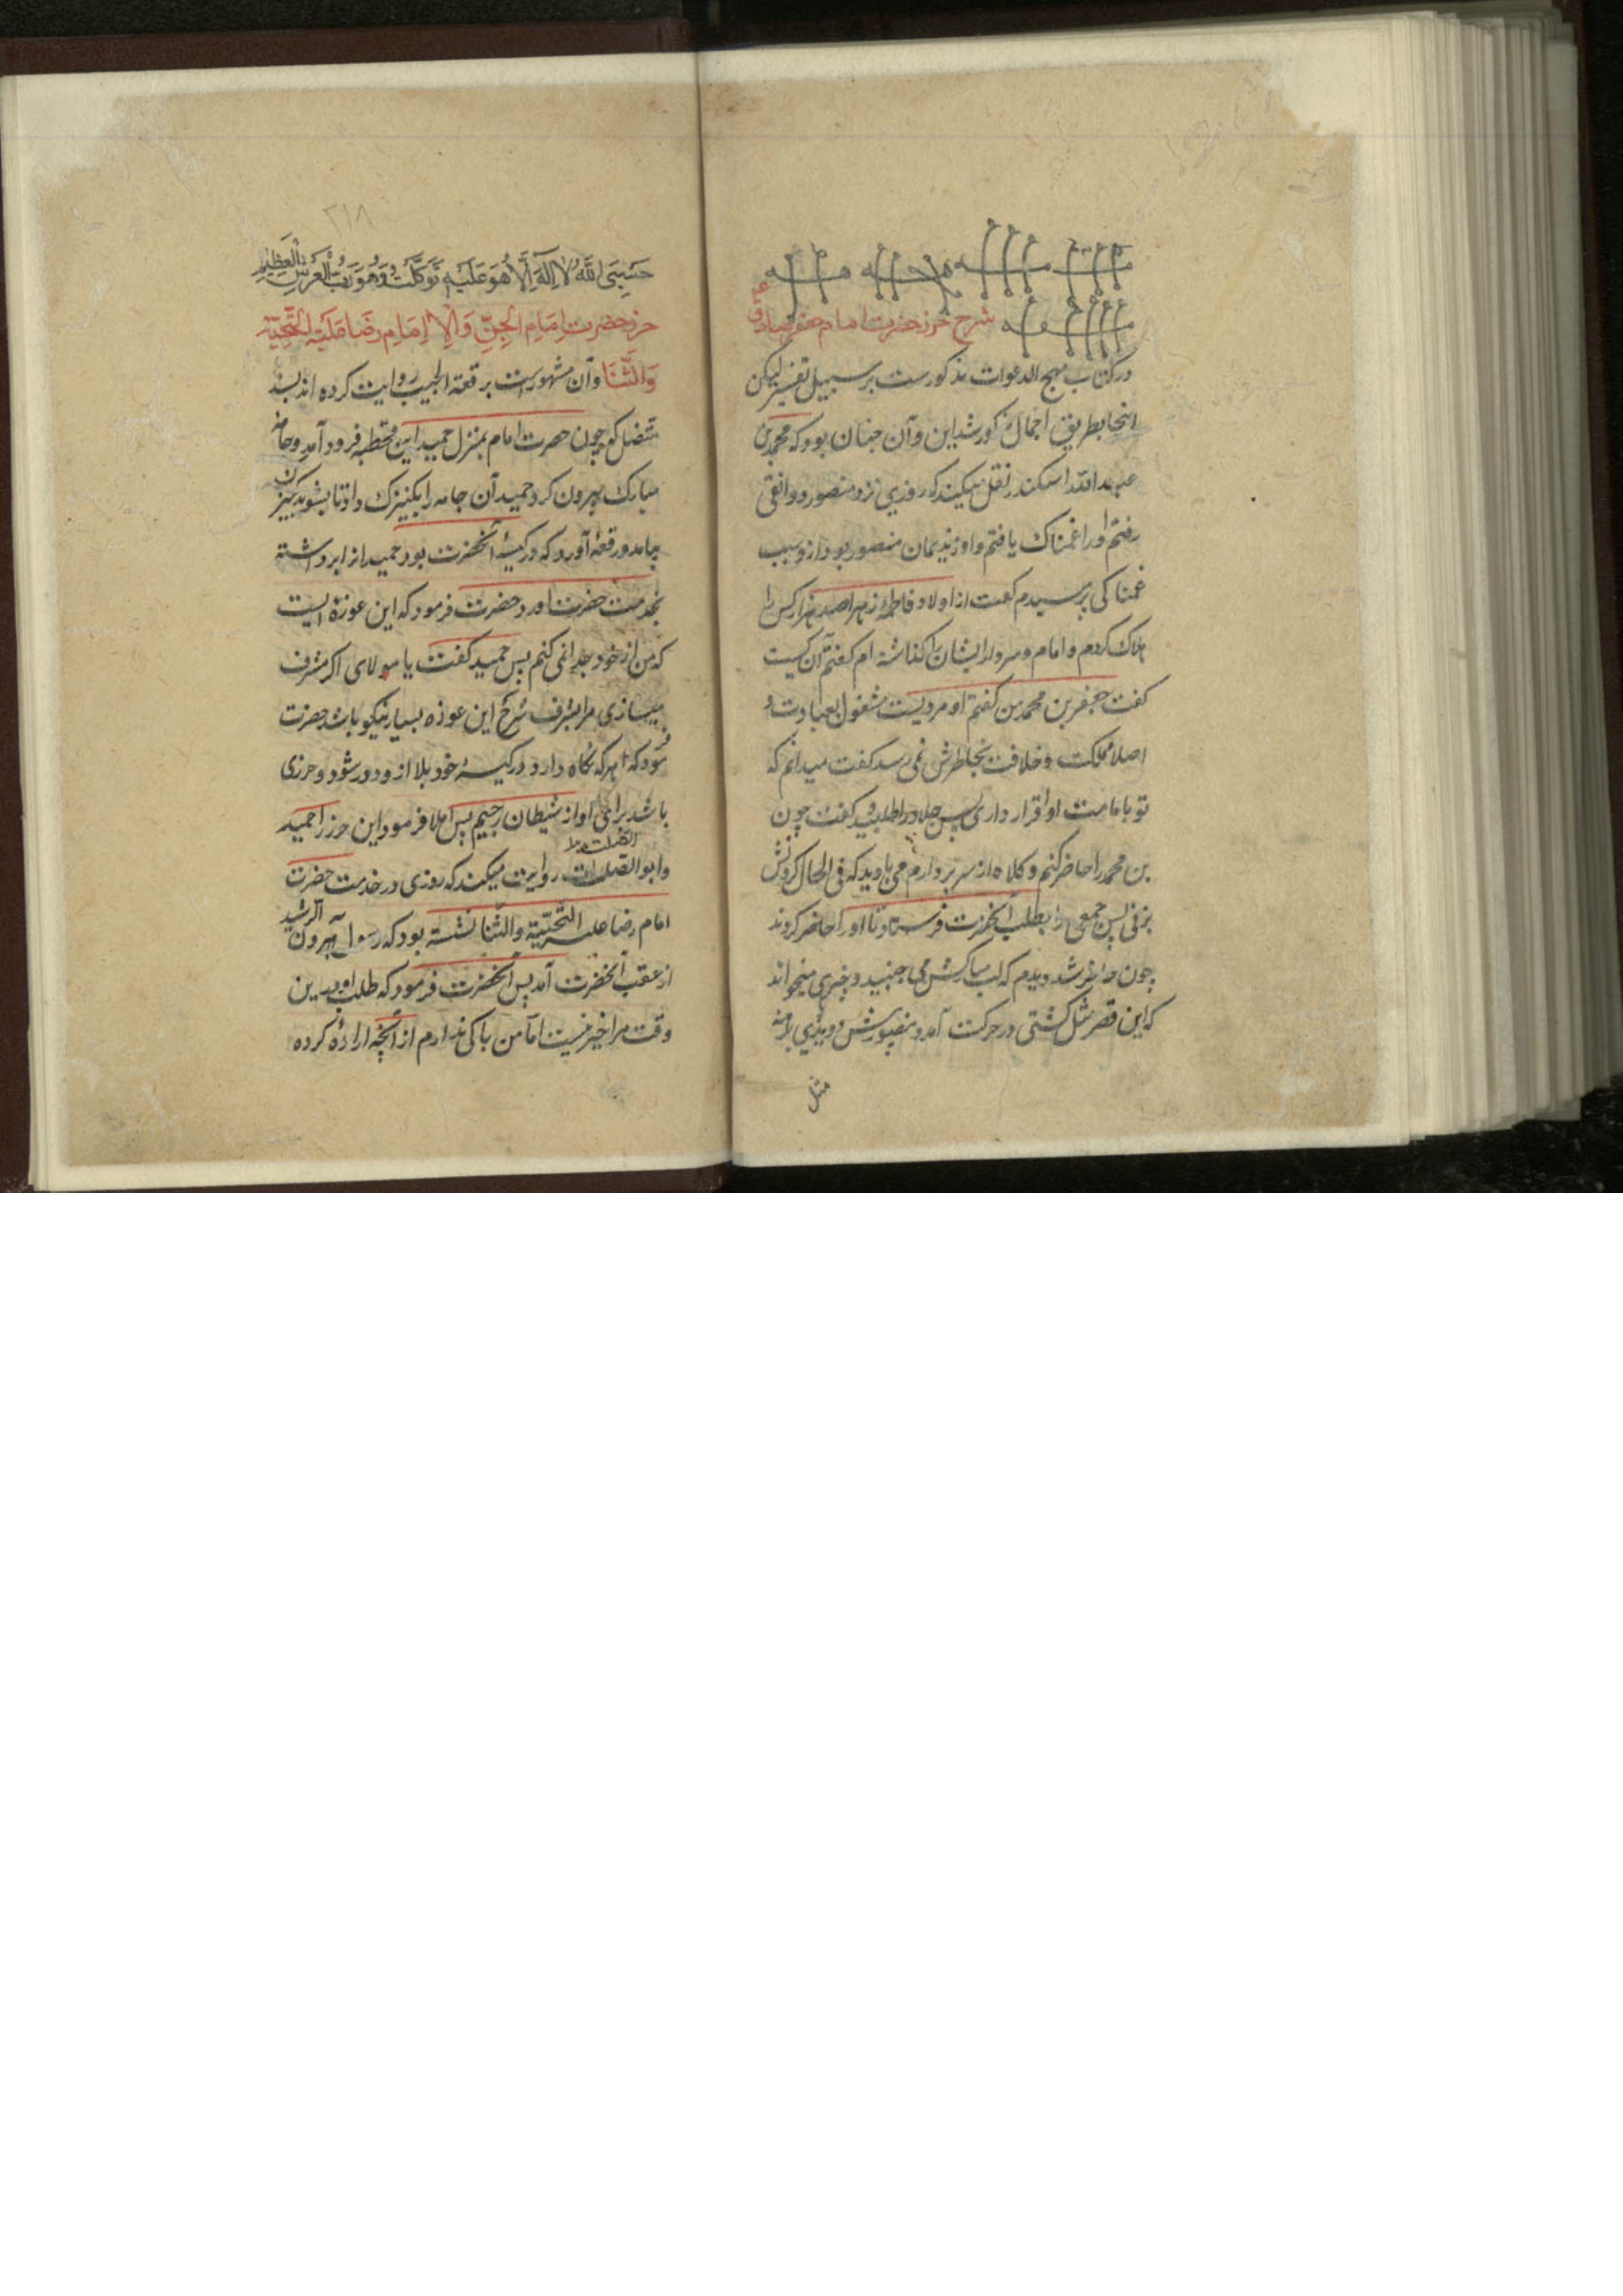 شرح حرز حضرت امام جعفر صادق ع
در کتاب مهج الدعوات مذکورست بر سبیل تفسیر لیکن
اینجا بطریق اجمال مذکور شد این و آن چنان بود که محمد بن
عبدالله اسکندر نقل میکند که روزی نزد منصور دوانقی
رفتم او را غمناک یافتم و او از ندیمان منصور بود از و سبب
غمناکی پرسیدم گفت از اولاد فاطمه زهرا صد هزار کس را
هلاک کردم و امام و سرور ایشان را گذاشته ام گفتم آن کیست
گفت جعفر بن محمد من گفتم او مردیست مشغول بعبادت و
اصلا مملکت و خلافت بخاطرش نمی رسد گفت میدانم که
تو بامامت او اقرار داری پس جلاد را طلبید گفت چون
بن محمد را حاضر کنم و کلاه از سر بردارم می باوید که فی الحال کردنش
بزنی پس جمعی را بطلب آنحضرت فرستاد تا او را حاضر کردند
چون حاضر شد دیدم که لب مبارکش می جنبید و چیزی میخواند
که این قصر مثل کشتی در حرکت آمد و منصور
مثل
۲۱۸
حَسْبِیَ اللَّهُ لَا إِلَهَ إِلَّا هُوَ عَلَیْهِ تَوَکَّلْتُ وَهُوَ رَبُّ الْعَرْشِ الْعَظِیمِ
حرز حضرت اِمَامِ الجِنِّ وَالاِ اِمَامِ رِضَا عَلَیْهِ التَّحِیَّة
وَالثَّنَا وآن مشهورست برقعة الجیب روایت کرده اند بسند
متصل که چون حضرت امام بمنزل حمید ابن قحطبه فرود آمد و جامه
مبارک بیرون کرد حمید آن جامه را بکنیزک داد تا بشوید کنیزک
بیامد و رقعه آورد که در کیسهٔ آنحضرت بود حمید از ابرداشته
بخدمت حضرت آورد حضرت فرمود که این عوذه ایست
که من از خود جدا نمی کنم پس حمید گفت یا مولای اگر مشرف
میسازی مرا بشرف شرح این عوذه بسیار نیکو باشد حضرت
فرمود که هر که نگاه دارد در کیسهٔ خود بلا از و دور شود و حرزی
باشد برای او از شیطان رجیم پس املا فرمود این حرز را حمید
وابو الصلت روایت میکند که روزی در خدمت حضرت
امام رضا علیه التَّحِیَّة والثَّنا نشسته بود که رسول هرون الرشید
از عقب آنحضرت آمد پس آنحضرت فرمود که طلب او در این
وقت مرا خیر نیست اما من باکی ندارم از آنچه ارادهٔ کرده